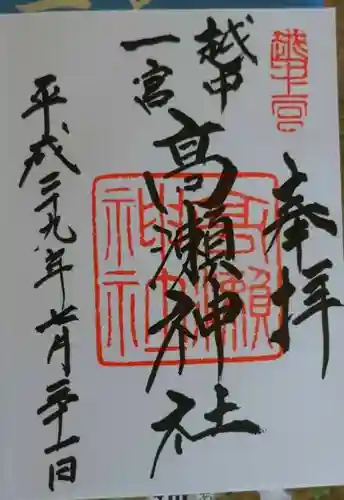 奉拝
越中一宮
越中
一宮
高瀬神社
高瀬神社
平成二十九年七月二十一日